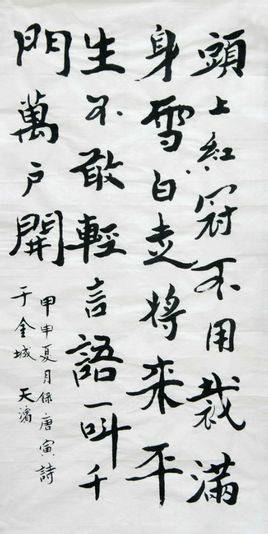 頭上紅冠不用裁滿
身雪白走將來平
生不敢輕言語一叫千
門萬戶開
甲申夏月保唐寅詩
于金城 天